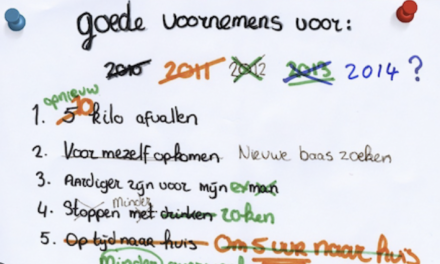 goede voornemens voor:
2010 2011 2012 2013 2014?
opnieuw
1. 5 10 kilo afvallen
2. Voor mezelf opkomen Nieuwe baas zoeken
3. Aardiger zijn voor mijn ex man
Minder
4. Stoppen met drinken roken
5. Op tijd naar huis Om 5 uur naar huis
Minder